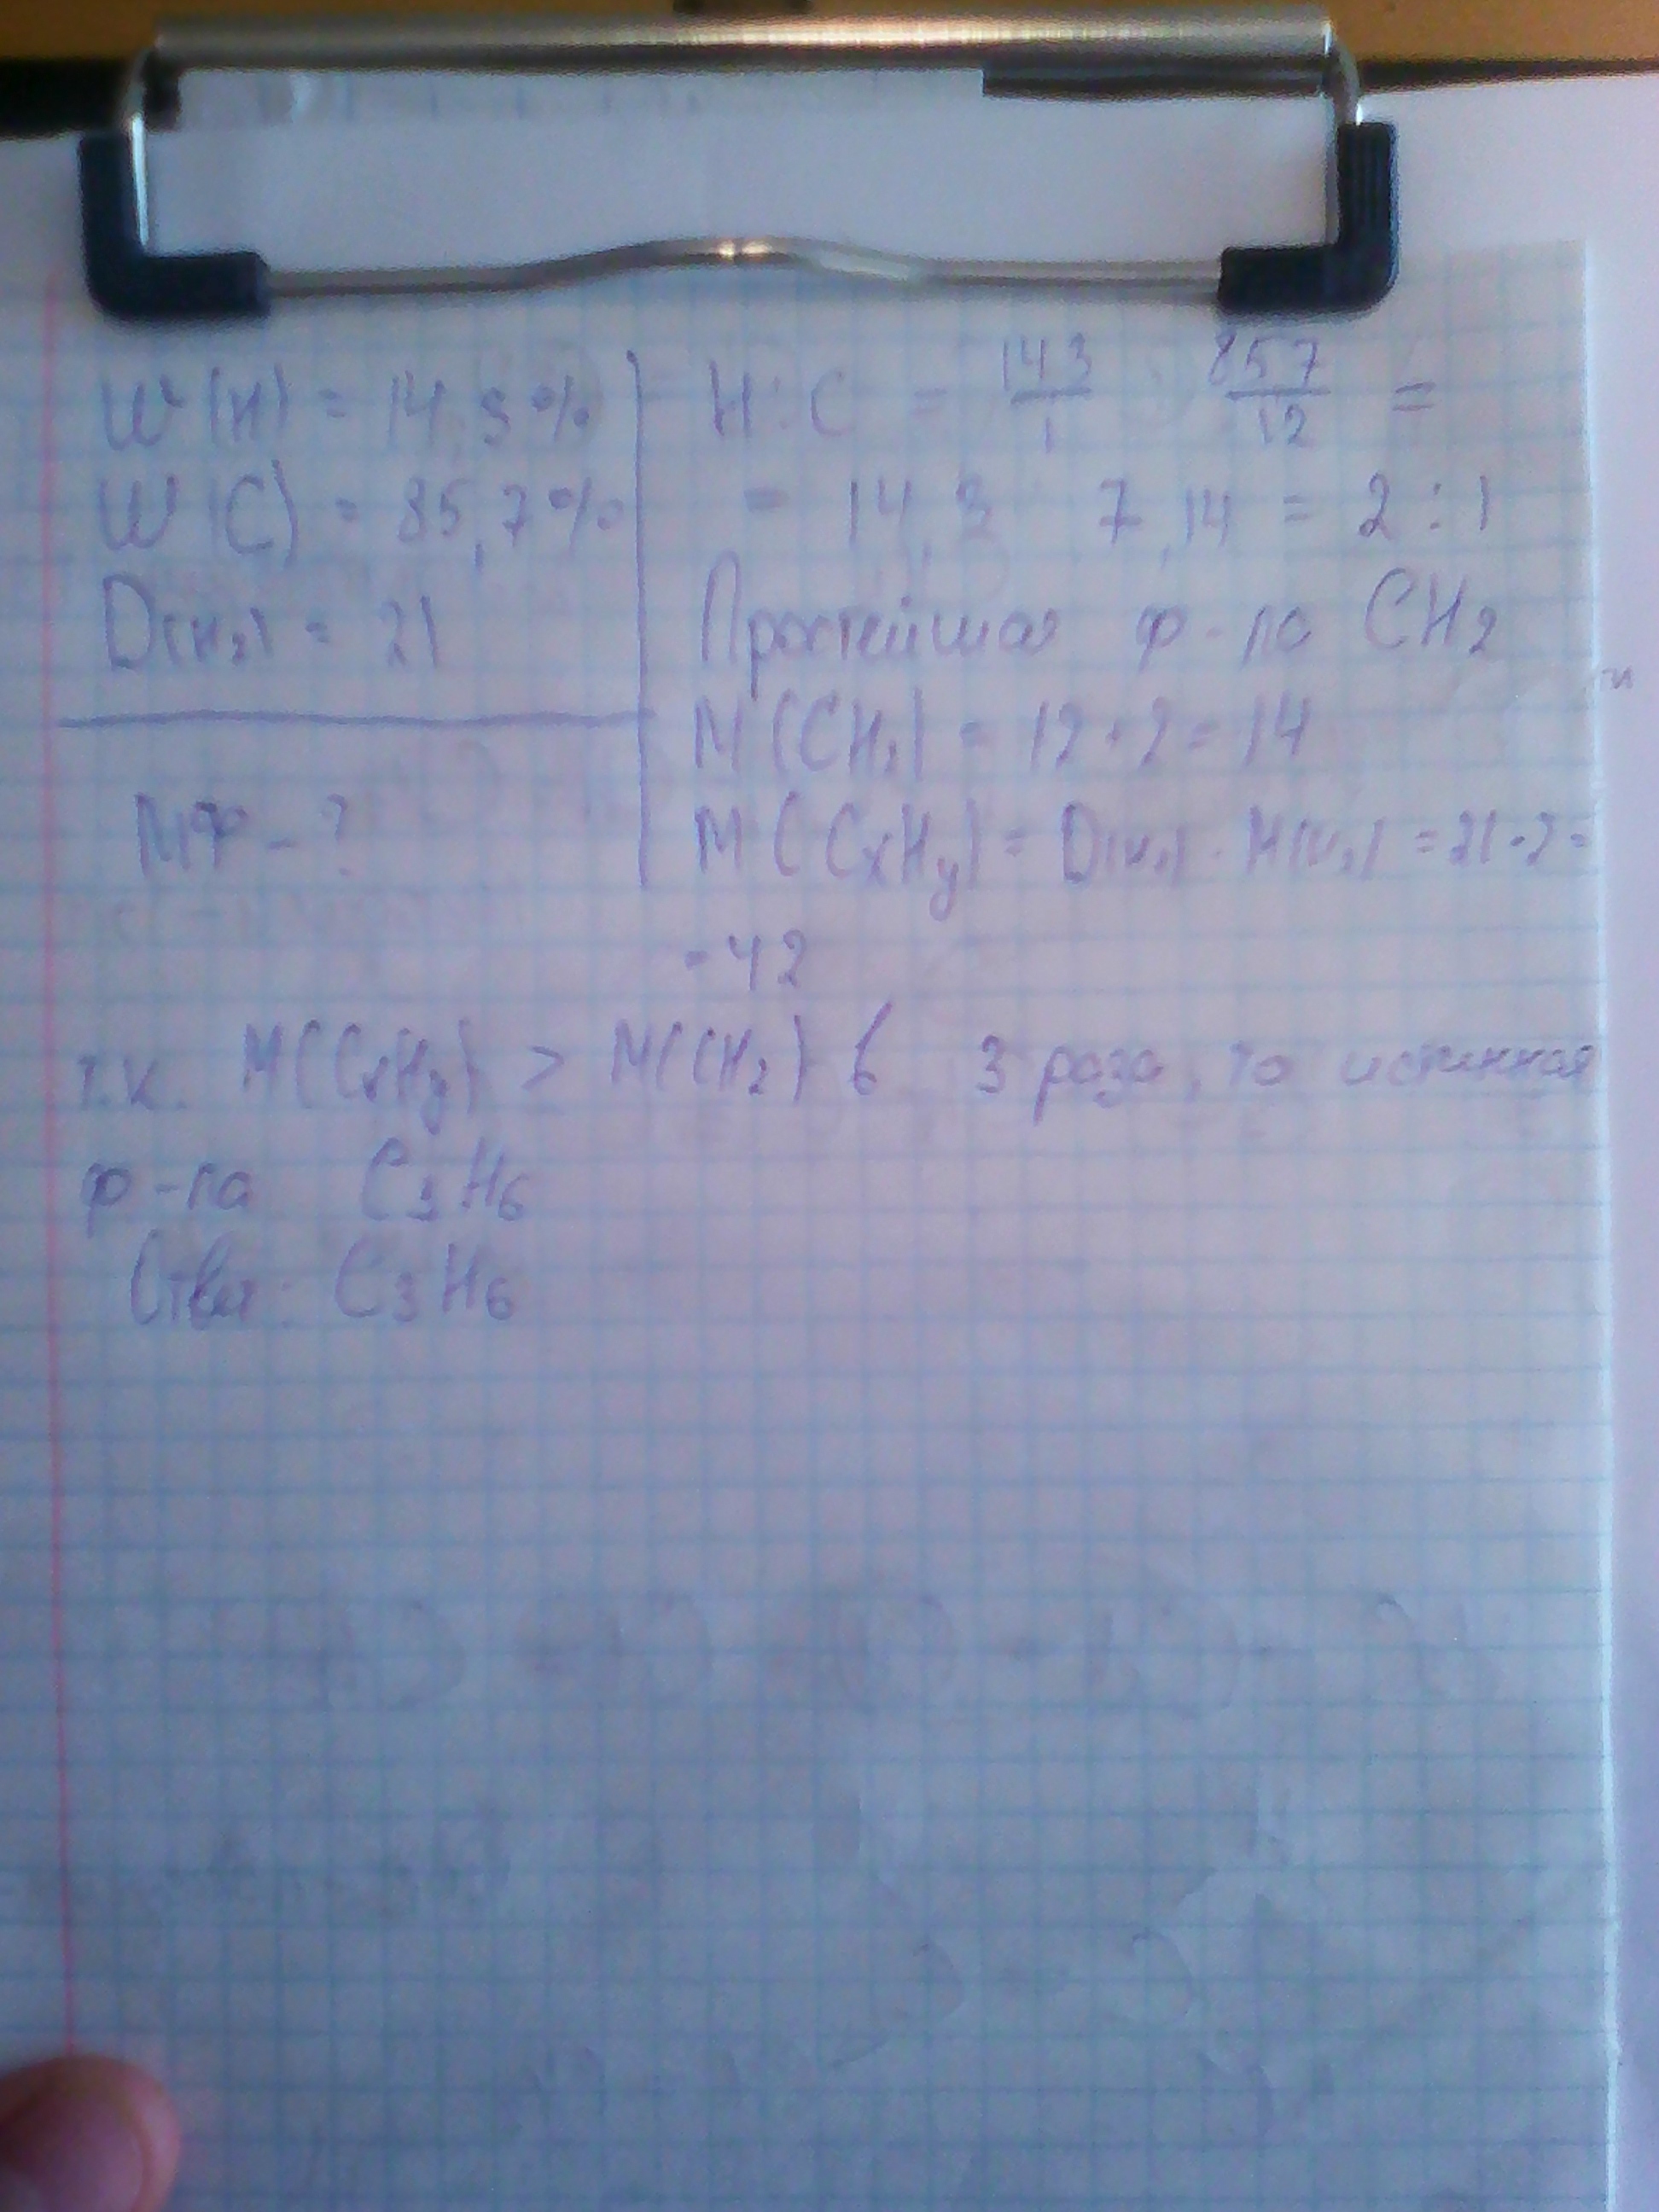 W(H) = 14,3%
W(C) = 85,7%
D(H₂) = 21
МФ - ?
H : C = 143/1 857/12 =
= 14,3 7,14 = 2 : 1
Простейшая ф-ла CH₂
M(CH₂) = 12+2 = 14
M(CxHy) = D(H₂) · M(H₂) = 21·2 =
= 42
т.к. M(CxHy) > M(CH₂) в 3 раза, то истинная
ф-ла C₃H₆
Ответ: C₃H₆